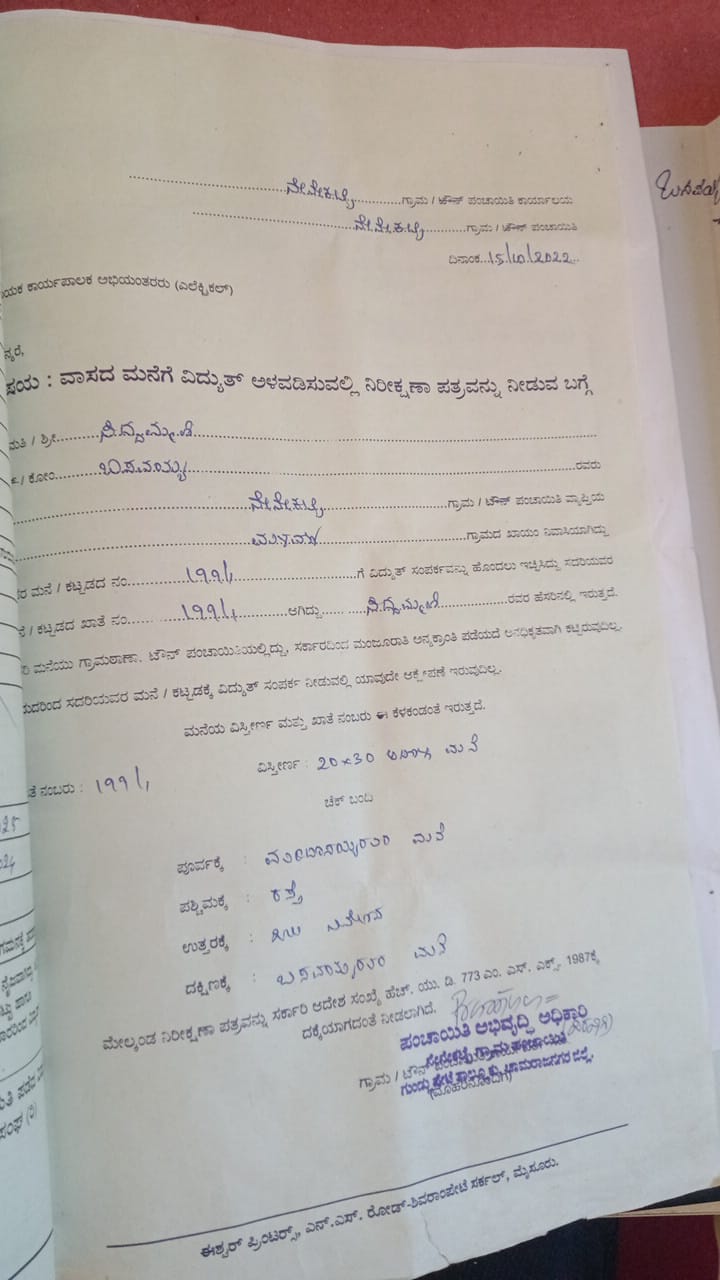 ನೇನೇಕಟ್ಟೆ ಗ್ರಾಮ / ಟೌನ್ ಪಂಚಾಯಿತಿ ಕಾರ್ಯಾಲಯ
ನೇನೇಕಟ್ಟೆ ಗ್ರಾಮ / ಟೌನ್ ಪಂಚಾಯಿತಿ
ದಿನಾಂಕ 15/10/2022
ಯಕ ಕಾರ್ಯಪಾಲಕ ಅಭಿಯಂತರರು (ಎಲೆಕ್ಟ್ರಿಕಲ್)
ನ್ಯರೆ,
ಷಯ : ವಾಸದ ಮನೆಗೆ ವಿದ್ಯುತ್ ಅಳವಡಿಸುವಲ್ಲಿ ನಿರೀಕ್ಷಣಾ ಪತ್ರವನ್ನು ನೀಡುವ ಬಗ್ಗೆ
ಮತಿ / ಶ್ರೀ
/ ಕೋಂ ಬಸವಯ್ಯ ರವರು
ನೇನೇಕಟ್ಟೆ ಗ್ರಾಮ / ಟೌನ್ ಪಂಚಾಯಿತಿ ವ್ಯಾಪ್ತಿಯ
ಗ್ರಾಮದ ಖಾಯಂ ನಿವಾಸಿಯಾಗಿದ್ದು
ರ ಮನೆ / ಕಟ್ಟಡದ ನಂ 199/1 ಗೆ ವಿದ್ಯುತ್ ಸಂಪರ್ಕವನ್ನು ಹೊಂದಲು ಇಚ್ಛಿಸಿದ್ದು ಸದರಿಯವರ
/ ಕಟ್ಟಡದ ಖಾತೆ ನಂ 199/1 ಆಗಿದ್ದು ರವರ ಹೆಸರಿನಲ್ಲಿ ಇರುತ್ತದೆ.
ರಿ ಮನೆಯು ಗ್ರಾಮಠಾಣಾ, ಟೌನ್ ಪಂಚಾಯಿತಿಯಲ್ಲಿದ್ದು, ಸರ್ಕಾರದಿಂದ ಮಂಜೂರಾತಿ ಅನ್ಯಕ್ರಾಂತಿ ಪಡೆಯದೆ ಅನಧಿಕೃತವಾಗಿ ಕಟ್ಟಿರುವುದಿಲ್ಲ.
ುದರಿಂದ ಸದರಿಯವರ ಮನೆ / ಕಟ್ಟಡಕ್ಕೆ ವಿದ್ಯುತ್ ಸಂಪರ್ಕ ನೀಡುವಲ್ಲಿ ಯಾವುದೇ ಆಕ್ಷೇಪಣೆ ಇರುವುದಿಲ್ಲ.
ಮನೆಯ ವಿಸ್ತೀರ್ಣ ಮತ್ತು ಖಾತೆ ನಂಬರು ಈ ಕೆಳಕಂಡಂತೆ ಇರುತ್ತದೆ.
ತೆ ನಂಬರು : 199/1 ವಿಸ್ತೀರ್ಣ : 20×30 ಮನೆ
ಚೆಕ್ ಬಂದಿ
ಪೂರ್ವಕ್ಕೆ : ಮನೆ
ಪಶ್ಚಿಮಕ್ಕೆ : ರಸ್ತೆ
ಉತ್ತರಕ್ಕೆ : ಖಾಲಿ ನಿವೇಶನ
ದಕ್ಷಿಣಕ್ಕೆ : ಬಸವಯ್ಯರವರ ಮನೆ
ಮೇಲ್ಕಂಡ ನಿರೀಕ್ಷಣಾ ಪತ್ರವನ್ನು ಸರ್ಕಾರಿ ಆದೇಶ ಸಂಖ್ಯೆ ಹೆಚ್. ಯು. ಡಿ. 773 ಎಂ. ಎಸ್. ಎಕ್ಸ್. 1987ಕ್ಕೆ
ದಕ್ಕೆಯಾಗದಂತೆ ನೀಡಲಾಗಿದೆ.
ಪಂಚಾಯಿತಿ ಅಭಿವೃದ್ಧಿ ಅಧಿಕಾರಿ
ನೇನೇಕಟ್ಟೆ ಗ್ರಾಮ ಪಂಚಾಯಿತಿ
ಗ್ರಾಮ / ಟೌನ್ ಪಂಚಾಯಿತಿ
ಗುಂಡ್ಲುಪೇಟೆ ತಾಲ್ಲೂಕು, ಚಾಮರಾಜನಗರ ಜಿಲ್ಲೆ.
(ಮೊಹರಿನೊಂದಿಗೆ)
ಈಶ್ವರ್ ಪ್ರಿಂಟರ್ಸ್, ಎನ್.ಎಸ್. ರೋಡ್-ಶಿವರಾಂಪೇಟೆ ಸರ್ಕಲ್, ಮೈಸೂರು.